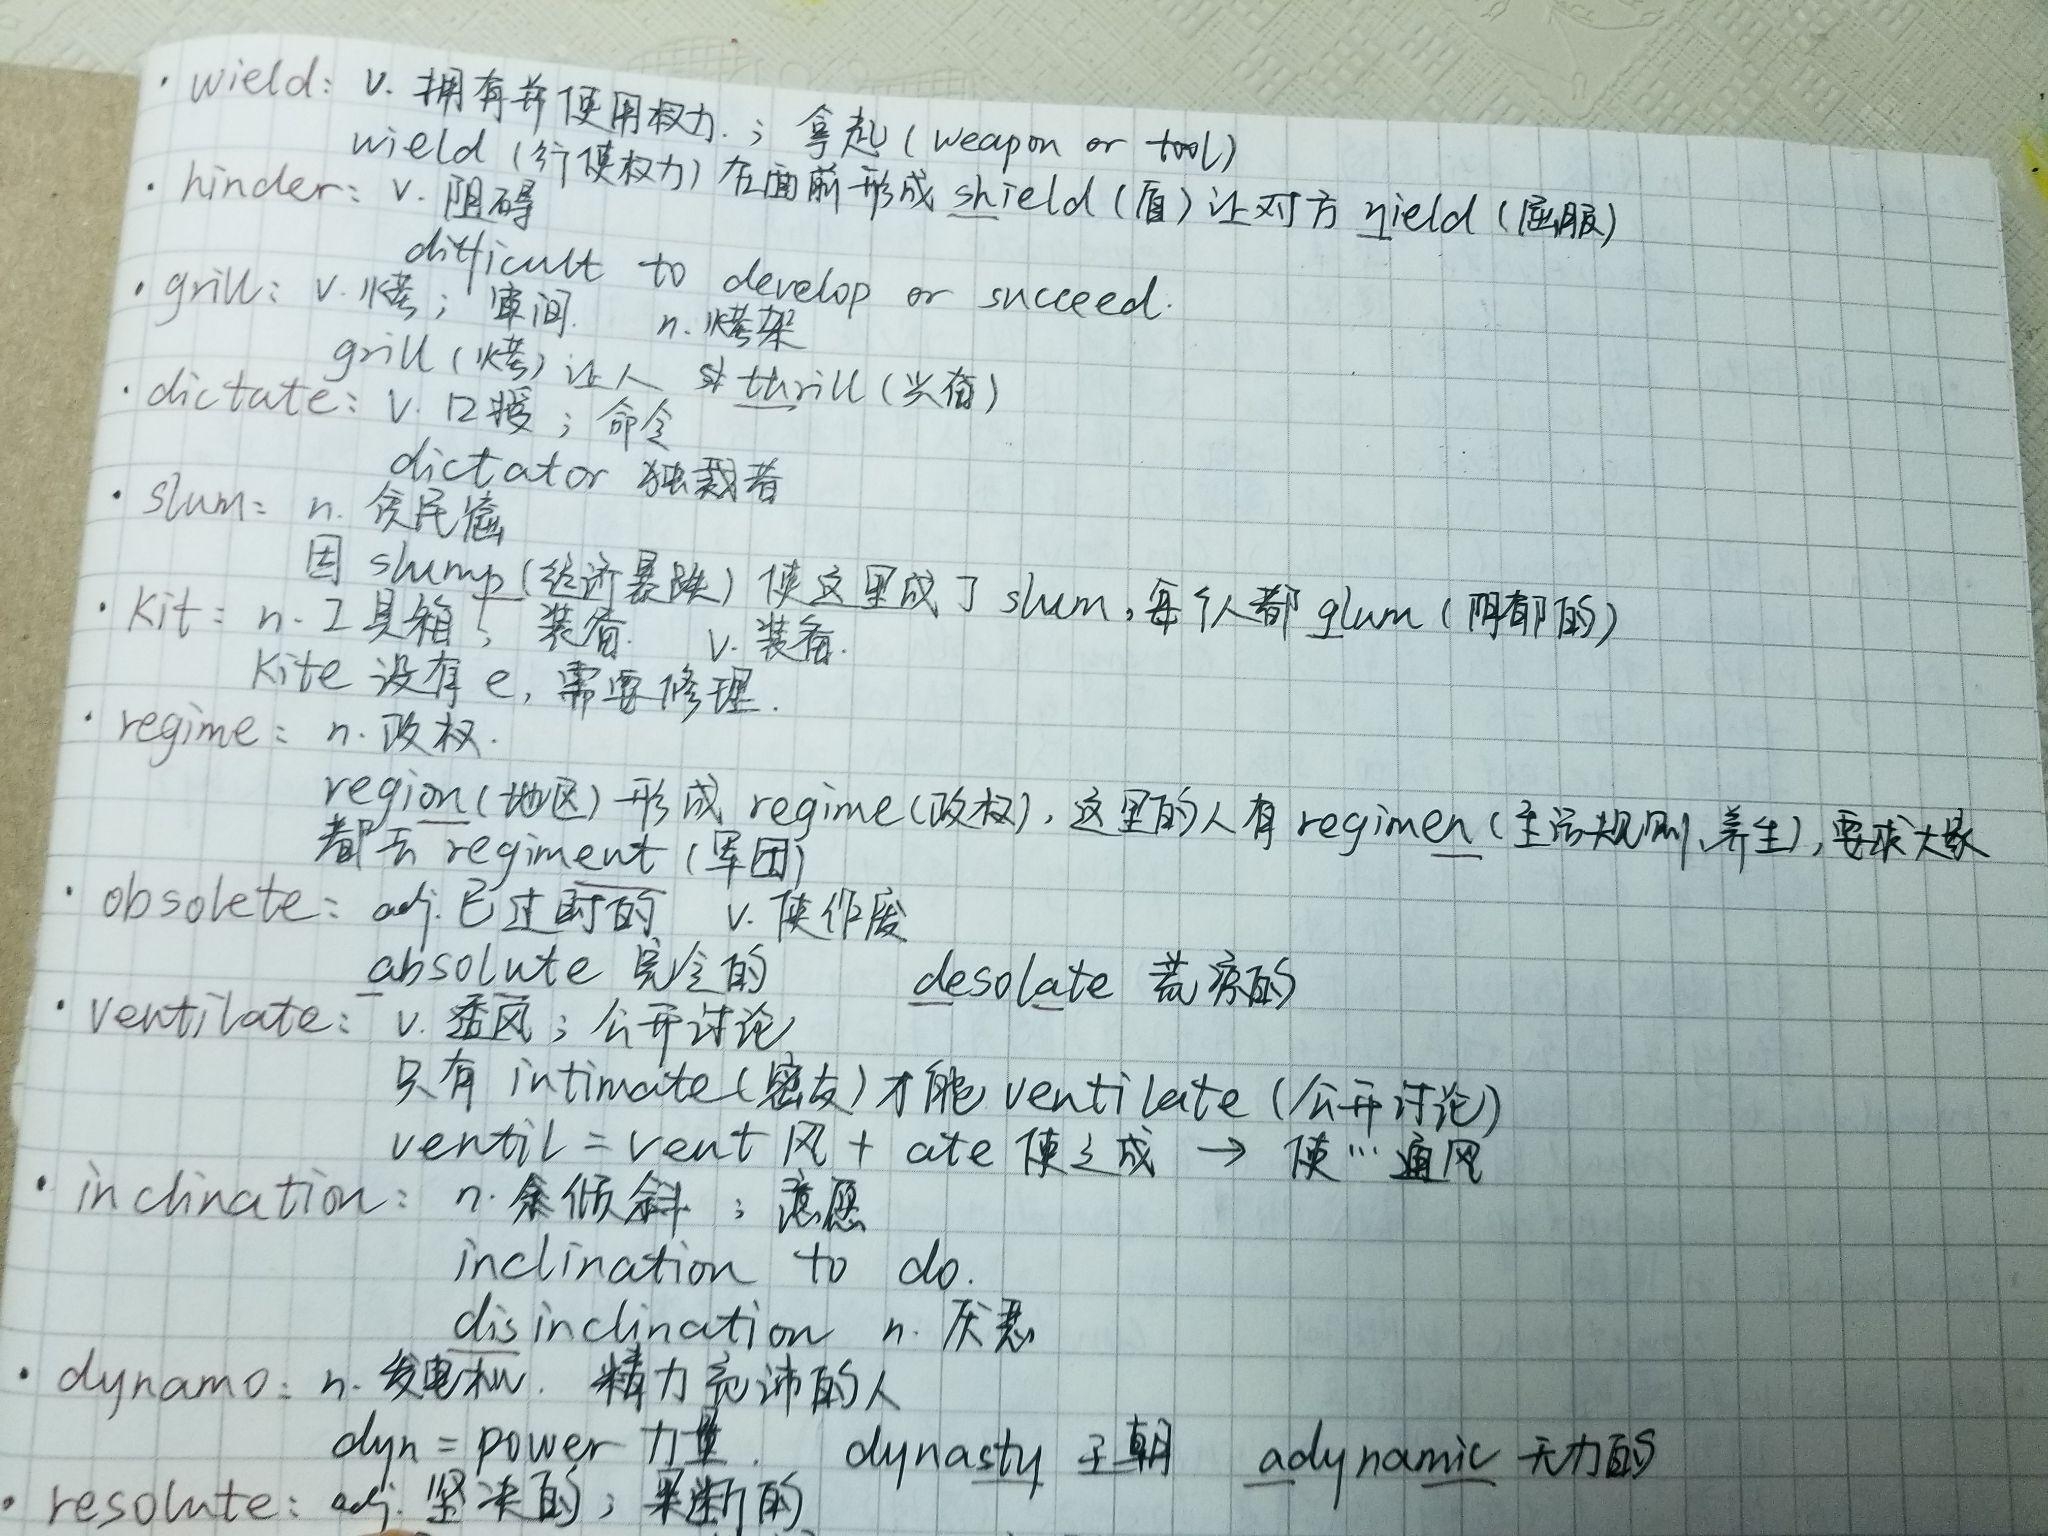 · wield: v. 拥有并使用权力.; 拿起(weapon or tool)
wield (行使权力) 在面前形成 shield (盾) 让对方 yield (屈服)
· hinder: v. 阻碍
difficult to develop or succeed.
· grill: v. 烤; 审问. n. 烤架
grill (烤) 让人 thrill (兴奋)
· dictate: v. 口授; 命令
dictator 独裁者
· slum: n. 贫民窟
因 slump (经济暴跌) 使这里成了 slum, 每个人都 glum (阴郁的)
· Kit: n. 工具箱; 装备. v. 装备.
Kite 没有 e, 需要修理.
· regime: n. 政权.
region (地区) 形成 regime (政权), 这里的人有 regimen (生活规则、养生), 要求大家
都去 regiment (军团)
· obsolete: adj. 已过时的 v. 使作废
absolute 完全的 desolate 荒凉的
· ventilate: v. 透风; 公开讨论
只有 intimate (密友) 才能 ventilate (公开讨论)
ventil = vent 风 + ate 使之成 → 使… 通风
· inclination: n. 倾斜; 意愿
inclination to do.
disinclination n. 厌恶
· dynamo: n. 发电机. 精力充沛的人
dyn = power 力量. dynasty 王朝 adynamic 无力的
· resolute: adj. 坚决的; 果断的